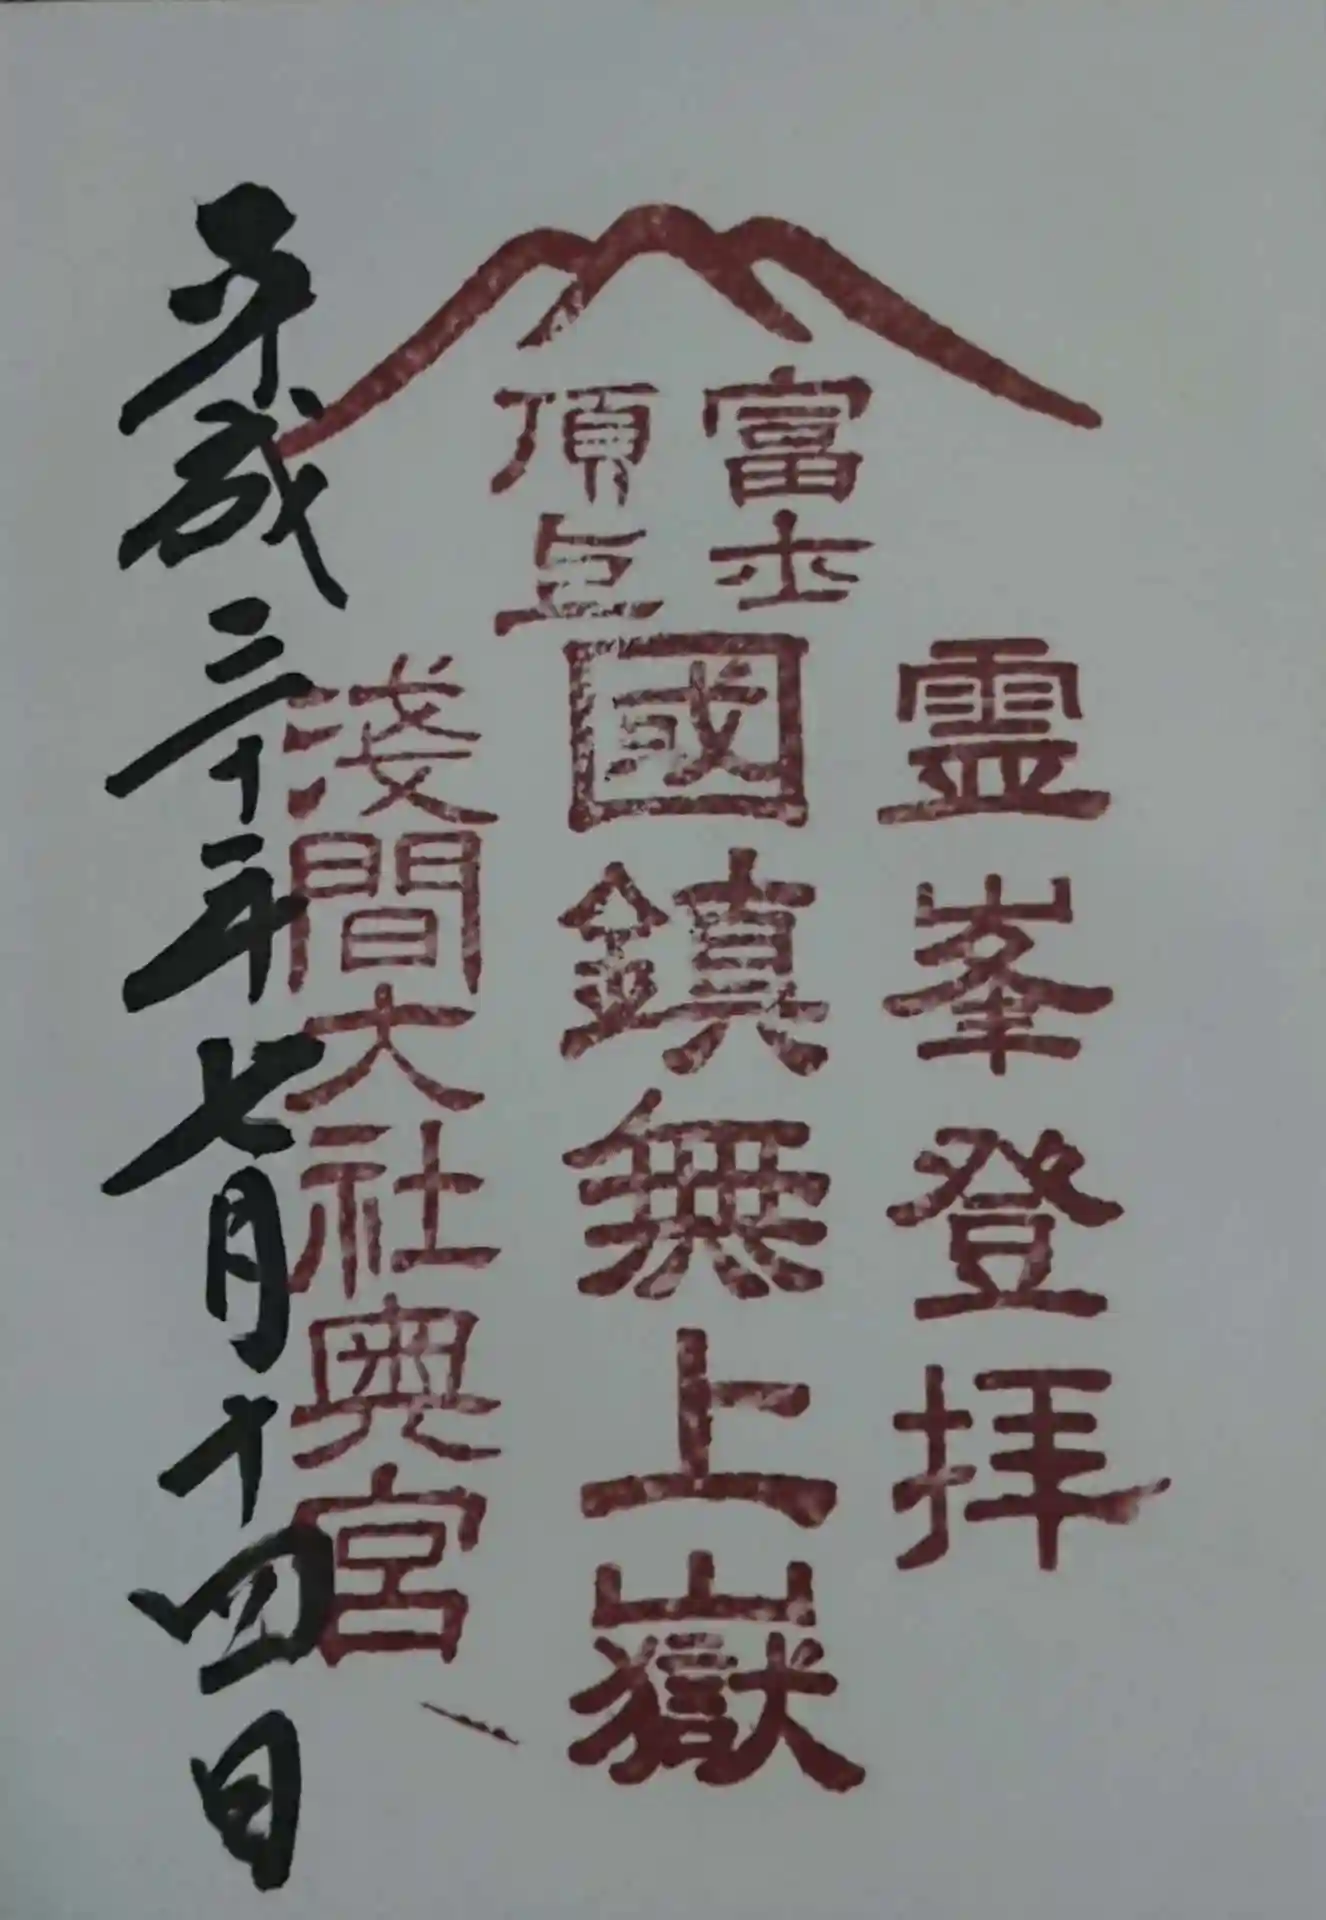 富士
頂上
霊峯登拝
國鎮無上嶽
淺間大社奥宮
平成二十年七月十四日